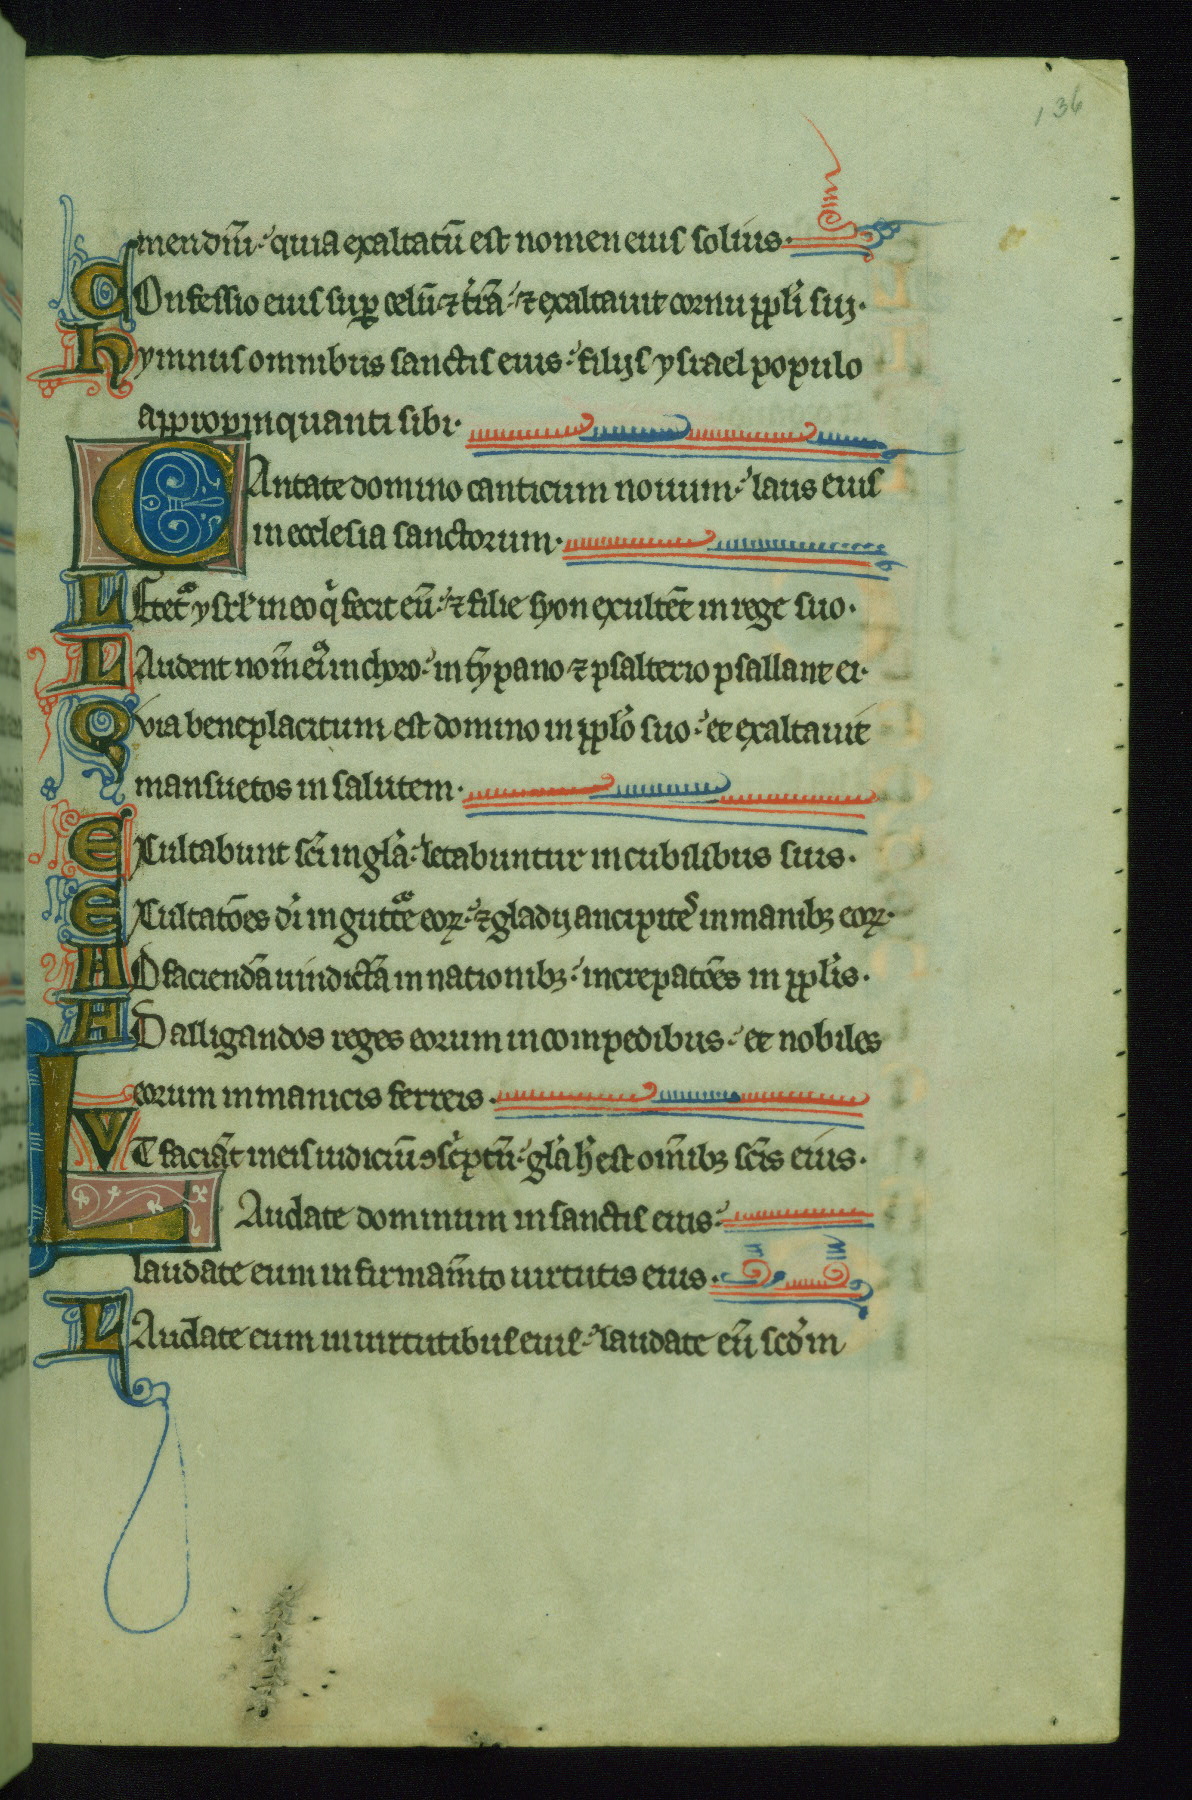 136
men dñi: quia exaltatũ est nomen eius solius.
COnfessio eius suꝑ celũ ⁊ t̃rã: ⁊ exaltauit cornu ppl̃i sui.
Hymnus omnibus sanctis eius: filijs ysrael populo
appropinquanti sibi.
CAntate domino canticum nouum: laus eius
in ecclesia sanctorum.
LEtet̃ ysrl̃ in eo q̃ fecit eũ: ⁊ filie syon exultẽt in rege suo.
LAudent nom̃ ei᷒ in choro: in tỹpano ⁊ psalterio psallant ei.
Quia beneplacitum est domino in ppl̃o suo: et exaltauit
mansuetos in salutem.
EXultabunt sc̃i in gl̃a: letabuntur in cubilibus suis.
EXultatões dĩ in gutt̃e eoꝝ: ⁊ gladij ancipitẽ in manibꝫ eoꝝ.
AD faciendã uindictã in nationibꝫ: increpatões in ppl̃is.
AD alligandos reges eorum in compedibus: et nobiles
eorum in manicis ferreis.
VT faciãt in eis iudiciũ ↄsc̃ptũ: gl̃a h̃ est om̃ibꝫ sc̃is eius.
LAudate dominum in sanctis eius:
laudate eum in firmam̃to uirtutis eius.
LAudate eum in uirtutibus eius: laudate eũ scd̃m